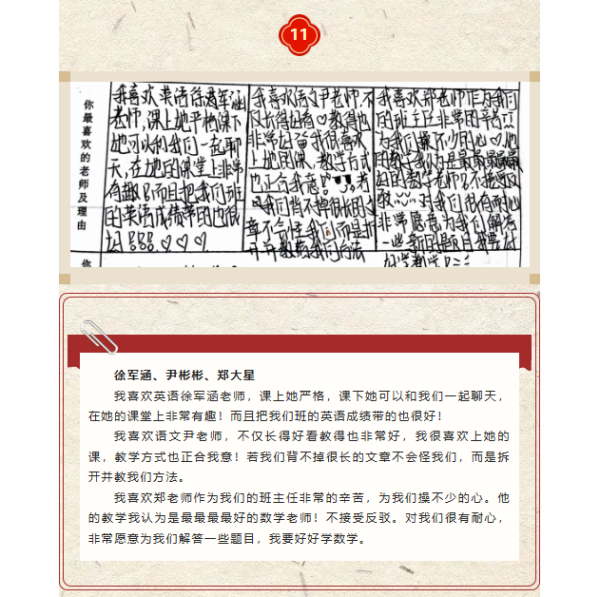 11
你最喜欢的老师及理由
我喜欢英语徐军涵
老师,课上她严格课下
她可以和我们一起聊
天,在她的课堂上非常
有趣!而且把我们班
的英语成绩带的也很
好!
我喜欢语文尹老师,不
仅长得好看教得也
非常好
我很喜欢
上她的课,教学方式
也正合我意!
若
我们背不掉很长的文
章不会怪我们而是拆
开并教我们方法
我喜欢郑老师作为我们
的班主任非常的辛苦
为我们操不少的心
他
的教学我认为是最最最最
好的数学老师!不接受反
驳
对我们很有耐心
非常愿意为我们解答
一些
题目我要好
好学数学
你
徐军涵、尹彬彬、郑大星
我喜欢英语徐军涵老师,课上她严格,课下她可以和我们一起聊天,
在她的课堂上非常有趣!而且把我们班的英语成绩带的也很好!
我喜欢语文尹老师,不仅长得好看教得也非常好,我很喜欢上她的
课,教学方式也正合我意!若我们背不掉很长的文章不会怪我们,而是拆
开并教我们方法。
我喜欢郑老师作为我们的班主任非常的辛苦,为我们操不少的心。他
的教学我认为是最最最最好的数学老师!不接受反驳。对我们很有耐心,
非常愿意为我们解答一些题目,我要好好学数学。